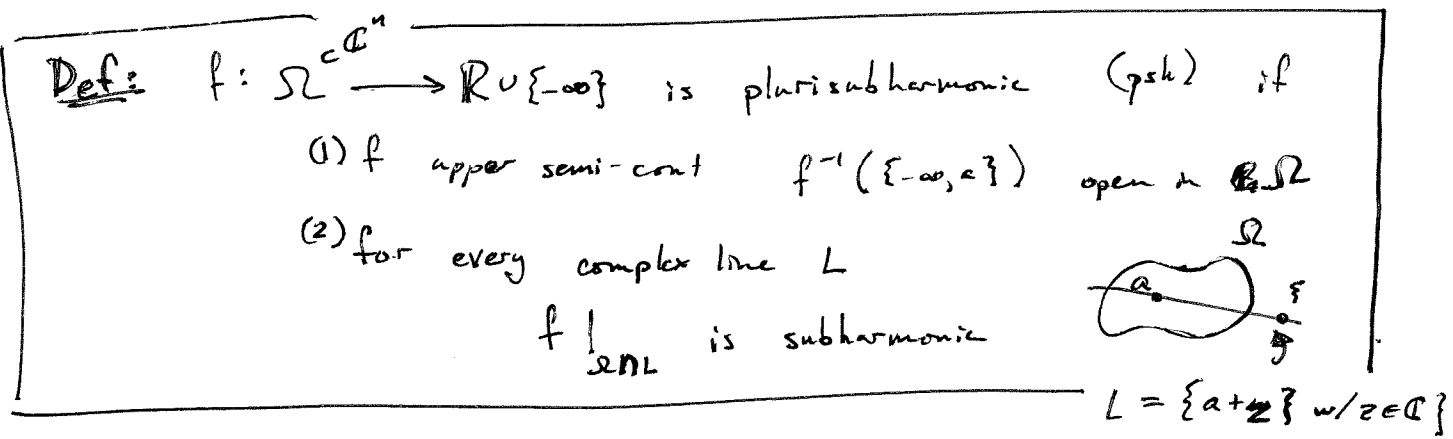 Def: f: Ω⊂ℂⁿ ⟶ ℝ∪{-∞} is plurisubharmonic (psh) if
(1) f upper semi-cont f⁻¹({-∞,a}) open in Ω
(2) for every complex line L
Ω
a ξ
f|Ω∩L is subharmonic
L = {a+z} w/z∈ℂ}